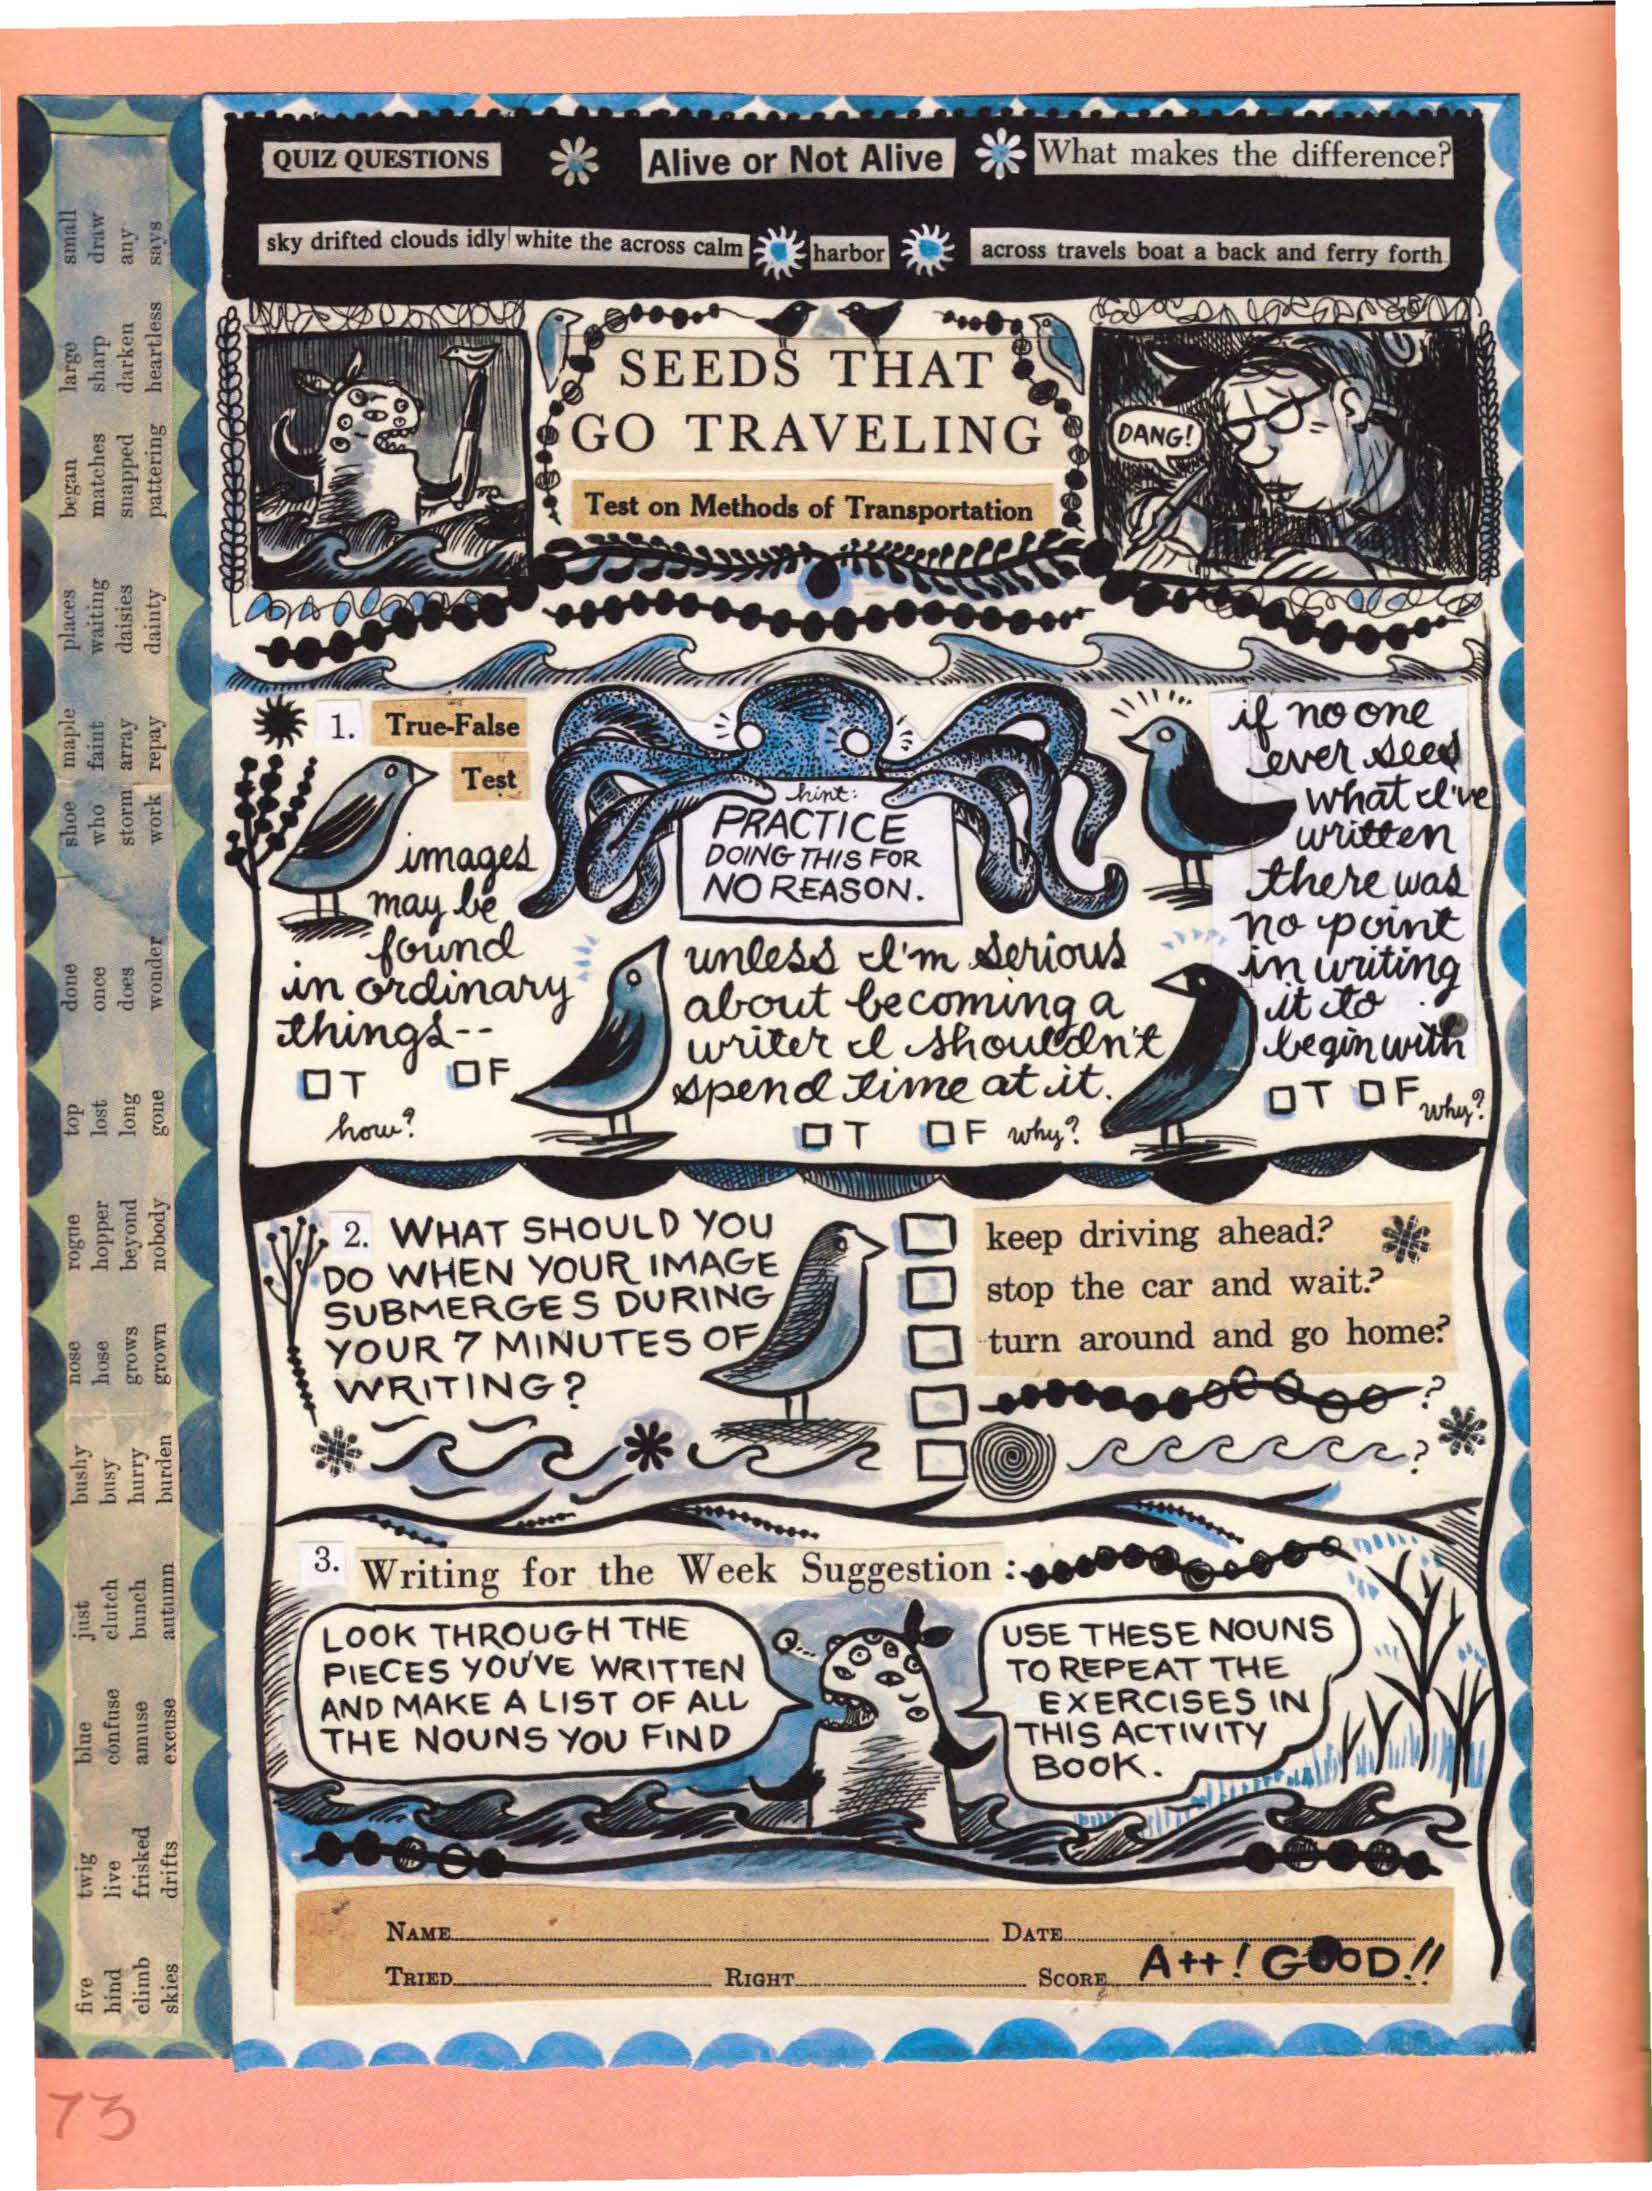 QUIZ QUESTIONS
Alive or Not Alive
What makes the difference?
sky drifted clouds idly white the across calm
harbor
across travels boat a back and ferry forth
SEEDS THAT
GO TRAVELING
Test on Methods of Transportation
DANG!
1. True-False
Test
images
may be
found
in ordinary
things--
T F
how?
hint:
PRACTICE
DOING THIS FOR
NO REASON.
unless I'm serious
about becoming a
writer I shouldn't
spend time at it.
T F why?
if no one
ever sees
what I've
written
there was
no point
in writing
it to
begin with
T F why?
2. WHAT SHOULD YOU
DO WHEN YOUR IMAGE
SUBMERGES DURING
YOUR 7 MINUTES OF
WRITING?
keep driving ahead?
stop the car and wait?
turn around and go home?
?
?
3. Writing for the Week Suggestion :
LOOK THROUGH THE
PIECES YOU'VE WRITTEN
AND MAKE A LIST OF ALL
THE NOUNS YOU FIND
USE THESE NOUNS
TO REPEAT THE
EXERCISES IN
THIS ACTIVITY
BOOK.
NAME DATE
TRIED RIGHT SCORE A++! GOOD!!
five twig blue just bushy nose rogue top done shoe maple places began large small
hind live confuse clutch busy hose hopper lost once who faint waiting matches sharp draw
climb frisked amuse bunch hurry grows beyond long does storm array daisies snapped darken any
skies drifts excuse autumn burden grown nobody gone wonder work repay dainty pattering heartless says
73